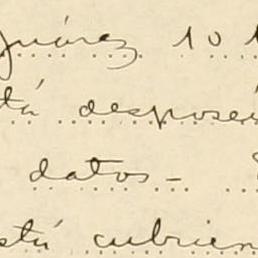 Juárez 101
tá desposeí
datos-
stá cubrien